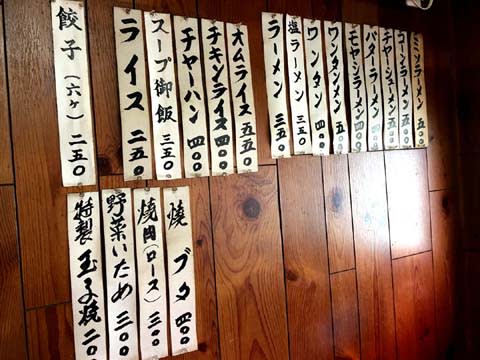 ミソラーメン 五〇〇
コーンラーメン 五〇〇
チャーシューメン 五〇〇
バターラーメン 四〇〇
モヤシラーメン 四〇〇
ワンタンメン 五〇〇
ワンタン 四〇〇
塩ラーメン 三五〇
ラーメン 三五〇
オムライス 五五〇
チキンライス 四〇〇
チャーハン 四〇〇
スープ御飯 三五〇
ライス 二五〇
餃子(六ヶ) 二五〇
焼ブタ 四〇〇
焼肉(ロース) 三〇〇
野菜いため 三〇〇
特製玉子焼 二〇